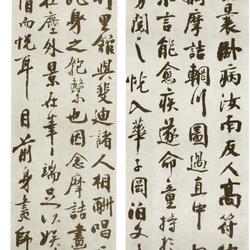 曩臥病汝南友人高
摩詰輞川圖過直中相
示言能愈疾遂命童持於
旁閱之恍入華子岡泊文
里館與斐迪諸人相酬唱
此身之匏繫也因念摩詰畫
在塵外景在筆端足以娛
情而悅耳目前身畫師